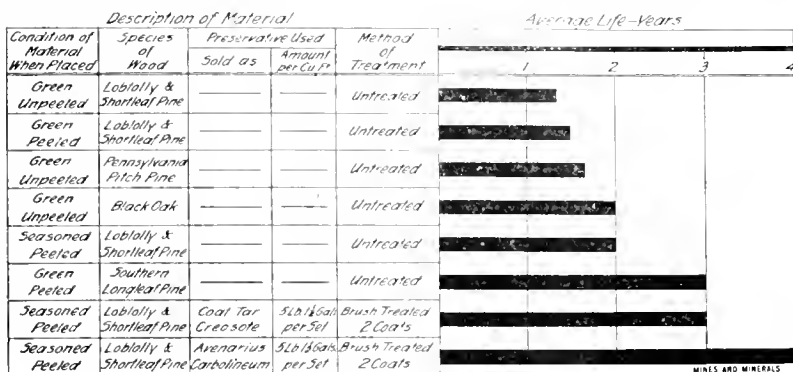 Description of Material
Average Life-Years
Condition of Material When Placed
Species of Wood
Preservative Used
Sold as
Amount per Cu Ft
Method of Treatment
1 2 3 4
Green Unpeeled Loblolly & Shortleaf Pine Untreated
Green Peeled Loblolly & Shortleaf Pine Untreated
Green Unpeeled Pennsylvania Pitch Pine Untreated
Green Unpeeled Black Oak Untreated
Seasoned Peeled Loblolly & Shortleaf Pine Untreated
Green Peeled Southern Longleaf Pine Untreated
Seasoned Peeled Loblolly & Shortleaf Pine Coal Tar Creosote 5 Lb. per Set Brush Treated 2 Coats
Seasoned Peeled Loblolly & Shortleaf Pine Avenarius Carbolineum 5 Lb. per Set Brush Treated 2 Coats
MINES AND MINERALS